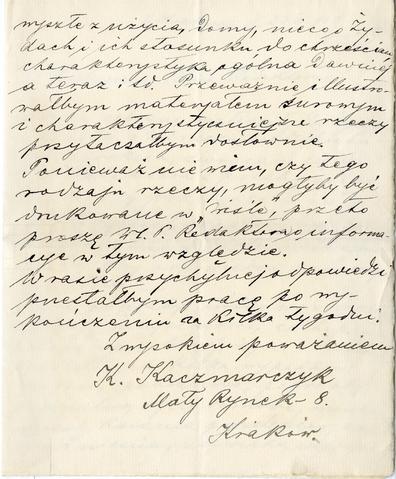 wyszłe z użycia, Domy, nieco o Ży-
dach i ich stosunku do chrześcian
charakterystyka ogólna Dawniej
a teraz i td. Przeważnie illustro-
wałbym materjałem surowym
i charakterystyczniejsze rzeczy
przytaczałbym dosłownie.
Ponieważ nie wiem, czy tego
rodzaju rzeczy, mogłyby być
drukowane w „Wiśle", przeto
proszę Wł. P. Redaktora o informa
cye w tym względzie.
W razie przychylnej odpowiedzi
przesłałbym pracę po wy-
kończeniu za kilka tygodni.
Z wysokiem poważaniem
K. Kaczmarczyk
Mały Rynek - 8.
Kraków.